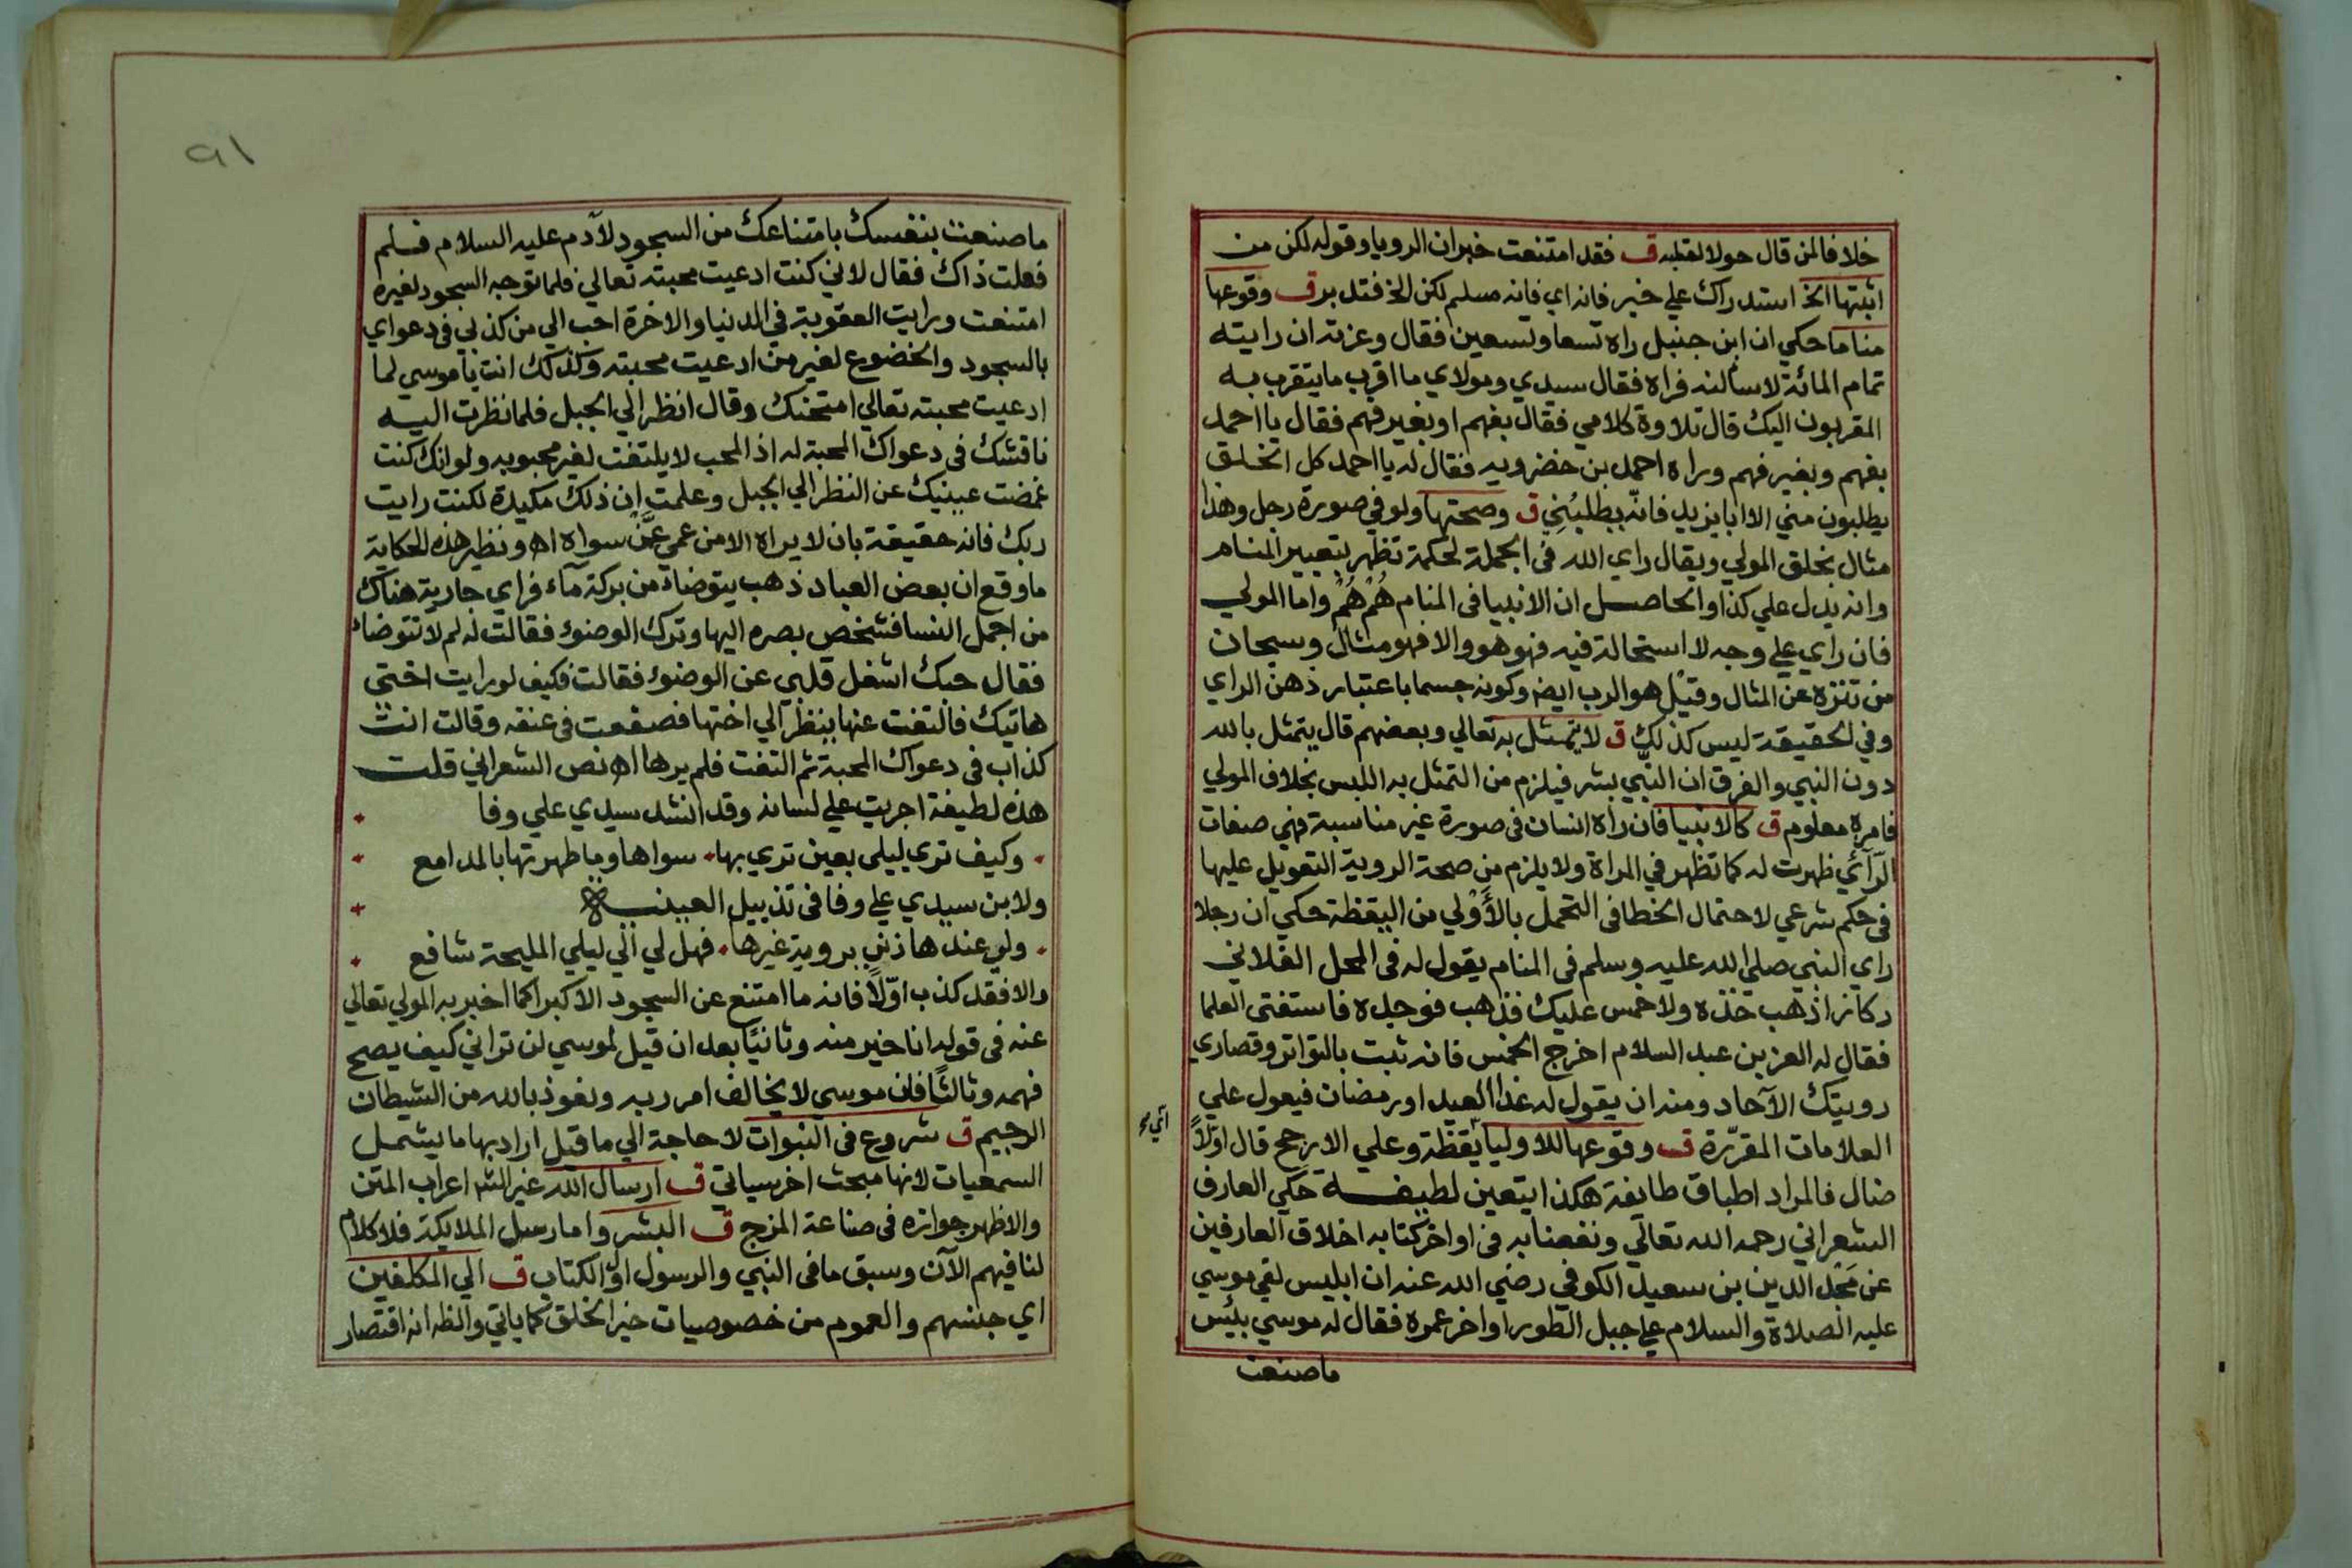 خلافا لمن قال حولا لقلبه ق فقد امتنعت خبران الرويا وقوله لكن من
اثبتها الخ استدراك علي خبر فانه اي فانه مسلم لكن الخ فتدبر ق وقوعها
مناما حكي ان ابن حنبل راه تسعا وتسعين فقال وعزته ان رايته
تمام المائة لاسألنه فراه فقال سيدي ومولاي ما اقرب ما يتقرب به
المقربون اليك قال تلاوة كلامي فقال بفهم او بغير فهم فقال يا احمد
بفهم وبغير فهم وراه احمد بن خضرويه فقال له يا احمد كل الخلق
يطلبون مني الا ابا يزيد فانه يطلبُنِي ق وصحتها ولو في صورة رجل وهذا
مثال بخلق المولي ويقال راي الله في الجملة لحكمة تظهر بتعبير المنام
وانه يدل علي كذا والحاصل ان الانبيا في المنام هُمْ هُمْ واما المولي
فان راي علي وجه لا استحالة فيه فهو هو والا فهو مثال وسبحان
من تنزه عن المثال وقيل هو الرب ايضا وكونه جسما باعتبار ذهن الراي
وفي الحقيقة ليس كذلك ق لا يتمثل به تعالي وبعضهم قال يتمثل بالله
دون النبي والفرق ان النبي بشر فيلزم من التمثل به اللبس بخلاف المولي
فامره معلوم ق كالانبيا فان راه انسان في صورة غير مناسبة فهي صفات
الرّآئي ظهرت له كما تظهر في المراة ولا يلزم من صحة الروية التعويل عليها
في حكم شرعي لاحتمال الخطا في التحمل بالأَوْلي من اليقظة حكي ان رجلا
راي النبي صلي الله عليه وسلم في المنام يقول له في المحل الفلاني
ركاز اذهب خذه ولا خمس عليك فذهب فوجده فاستفتي العلما
فقال له العز بن عبد السلام اخرج الخمس فانه ثبت بالتواتر وقصاري
رويتك الآحاد ومنه ان يقول له غدا العيد او رمضان فيعول علي
العلامات المقرّرة ق وقوعها للاوليا يقظة وعلي الارجح قال اوّلاً
ضال فالمراد اطباق طايفة هكذا يتعين لطيفة حكي العارف
الشعراني رحمه الله تعالي ونفعنا به في اواخر كتابه اخلاق العارفين
عن مَجْد الدين بن سعيد الكوفي رضي الله عنه ان ابليس لقي موسي
عليه الصلاة والسلام علي جبل الطور اواخر عمره فقال له موسي بئس
ما صنعت
٩١
ما صنعت بنفسك بامتناعك من السجود لآدم عليه السلام فلم
فعلت ذاك فقال لاني كنت ادعيت محبته تعالي فلما توجه السجود لغيره
امتنعت ورايت العقوبة في الدنيا والاخرة احب الي من كذبي في دعواي
بالسجود والخضوع لغير من ادعيت محبته وكذلك انت يا موسي لما
ادعيت محبته تعالي امتحنك وقال انظر الي الجبل فلما نظرت اليه
ناقشك في دعواك المحبة له اذ المحب لا يلتفت لغير محبوبه ولو انك كنت
غمضت عينيك عن النظر الي الجبل وعلمت ان ذلك مكيدة لكنت رايت
ربك فانه حقيقة بان لا يراه الا من عمي عَنْ سواه اه ونظير هذه الحكاية
ما وقع ان بعض العباد ذهب يتوضاء من بركة مآء فراي جارية هناك
من اجمل النسا فشخص بصره اليها وترك الوضوء فقالت له لم لا تتوضاء
فقال حبك اشغل قلبي عن الوضوء فقالت فكيف لو رايت اختي
هاتيك فالتفت عنها ينظر الي اختها فصفعت في عنقه وقالت انت
كذاب في دعواك المحبة ثم التفت فلم يرها اه نص الشعراني قلت
هذه لطيفة اجريت علي لسانه وقد انشد سيدي علي وفا
وكيف تري ليلي بعين تري بها سواها وما طهرتها بالمدامع
ولابن سيدي علي وفا في تذييل العينيه
ولي عندها ذنب بروية غيرها فهل لي الي ليلي المليحة شافع
والا فقد كذب اوّلاً فانه ما امتنع عن السجود الا كبرا كما اخبر به المولي تعالي
عنه في قوله انا خير منه وثانيًا بعد ان قيل لموسي لن تراني كيف يصح
فهمه وثالثًا فان موسي لا يخالف امر ربه ونعوذ بالله من الشيطان
الرجيم ق شروع في النبوات لا حاجة الي ما قيل اراد بها ما يشمل
السمعيات لانها مبحث اخر سياتي ق ارسال الله غير الش اعراب المتن
والاظهر جوازه في صناعة المزج ق البشر واما رسل الملايكة فلا كلام
لنا فيهم الآن وسبق ما في النبي والرسول اول الكتاب ق الي المكلفين
اي جنسهم والعموم من خصوصيات خير الخلق كما ياتي والظ انه اقتصار